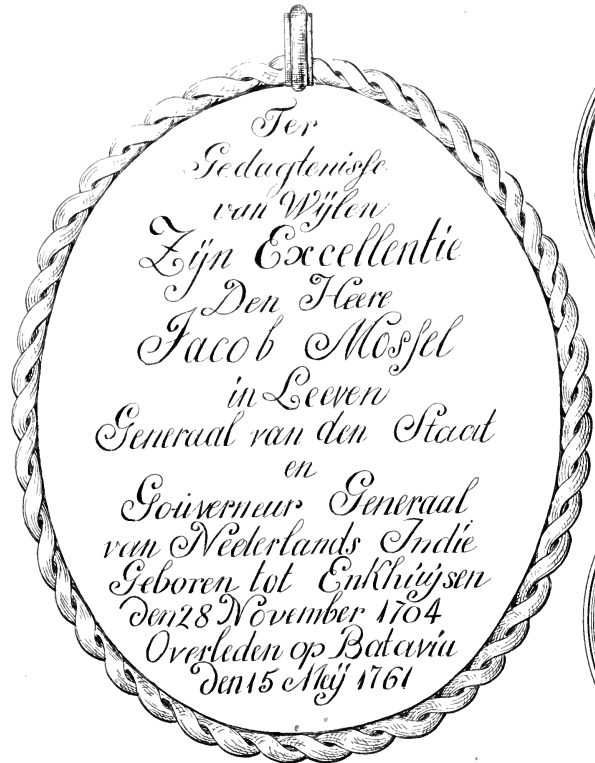 Ter
Gedagtenisse
van Wijlen
Zijn Excellentie
Den Heere
Jacob Mossel
in Leeven
Generaal van den Staat
en
Gouverneur Generaal
van Neederlands Indie
Geboren tot Enkhuijsen
den 28 November 1704
Overleden op Batavia
den 15 Meij 1761